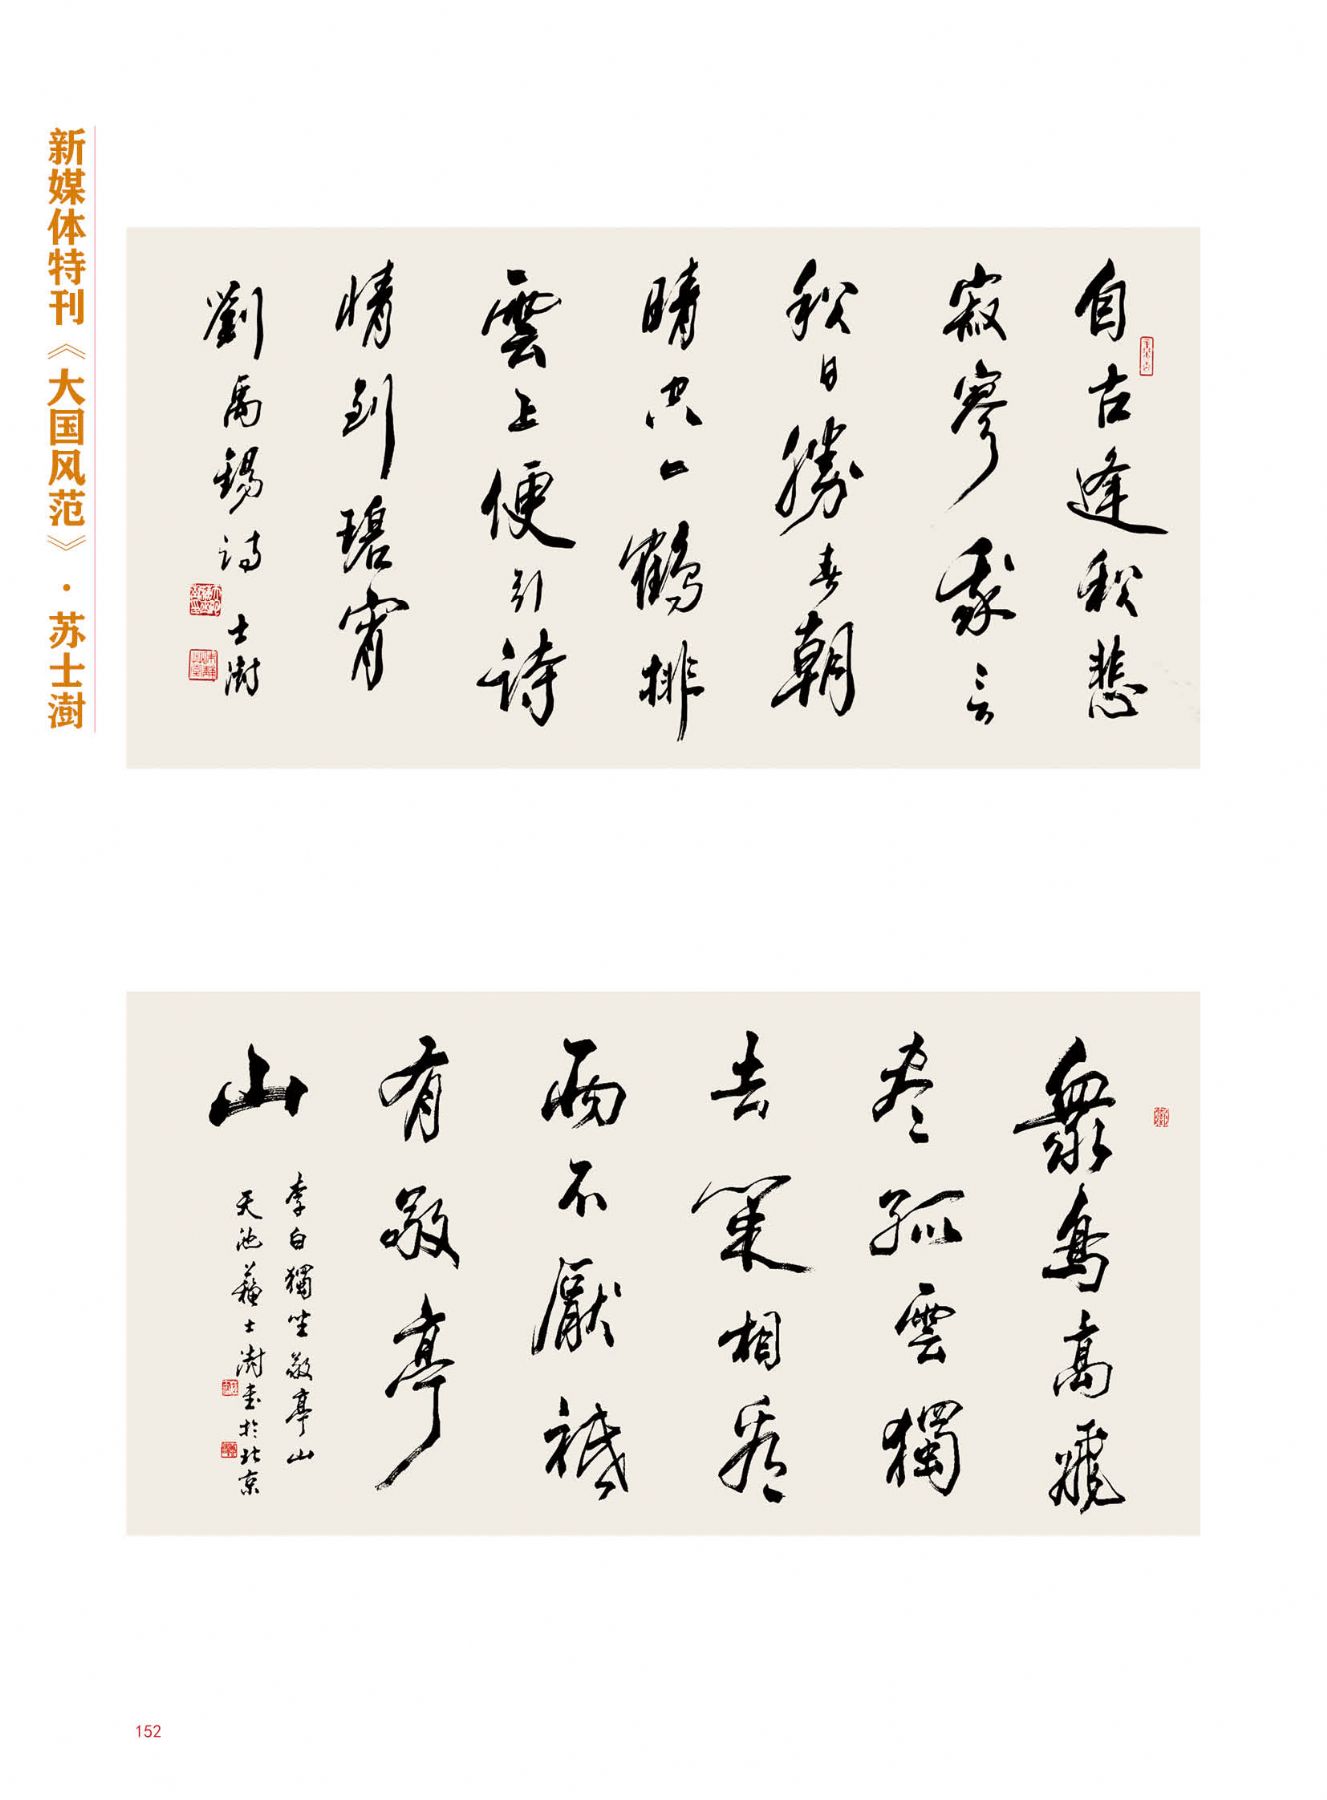 新媒体特刊《大国风范》·苏士澍
自古逢秋悲
寂寥我言
秋日勝春朝
晴空一鶴排
雲上便引詩
情到碧宵
劉禹錫詩 士澍
衆鳥高飛
尽孤雲獨
去閑相看
两不厭祇
有敬亭
山
李白獨坐敬亭山
天池蘇士澍書於北京
152